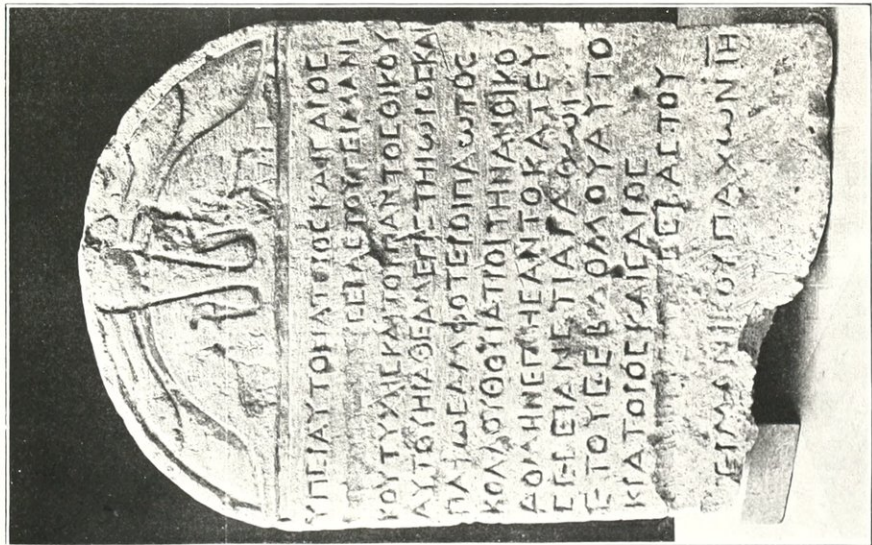 ΥΠΕΡΑΥΤΟΚΡΑΤΟΡΟϹΚΑΙϹΑΡΟϹ
ϹΕΒΑϹΤΟΥΓΕΡΜΑΝΙ
ΚΟΥΤΥΧΗϹΚΑΙΤΟΥΠΑΝΤΟϹΟΙΚΟΥ
ΑΥΤΟΥΗΡΑΘΕΑΜΕΓΙϹΤΗΙΩΡΟϹΚΑΙ
ΠΑΗΩϹΑΜΦΟΤΕΡΟΙΠΑΩΤΟϹ
ΚΟΛΛΟΥΘΟΥΙΑΤΡΟΙΤΗΝΑΝΟΙΚΟ
ΔΟΜΗΝΕΠΗϹΑΝΤΟΚΑΤΕΥ
ϹΕΒΕΙΑΝΕΠΑΓΑΘΩΙ
ΕΤΟΥϹΕΒΔΟΜΟΥΑΥΤΟ
ΚΡΑΤΟΡΟϹΚΑΙϹΑΡΟϹ
ϹΕΒΑϹΤΟΥ
ΓΕΡΜΑΝΙΚΟΥΠΑΧΩΝΙΗ